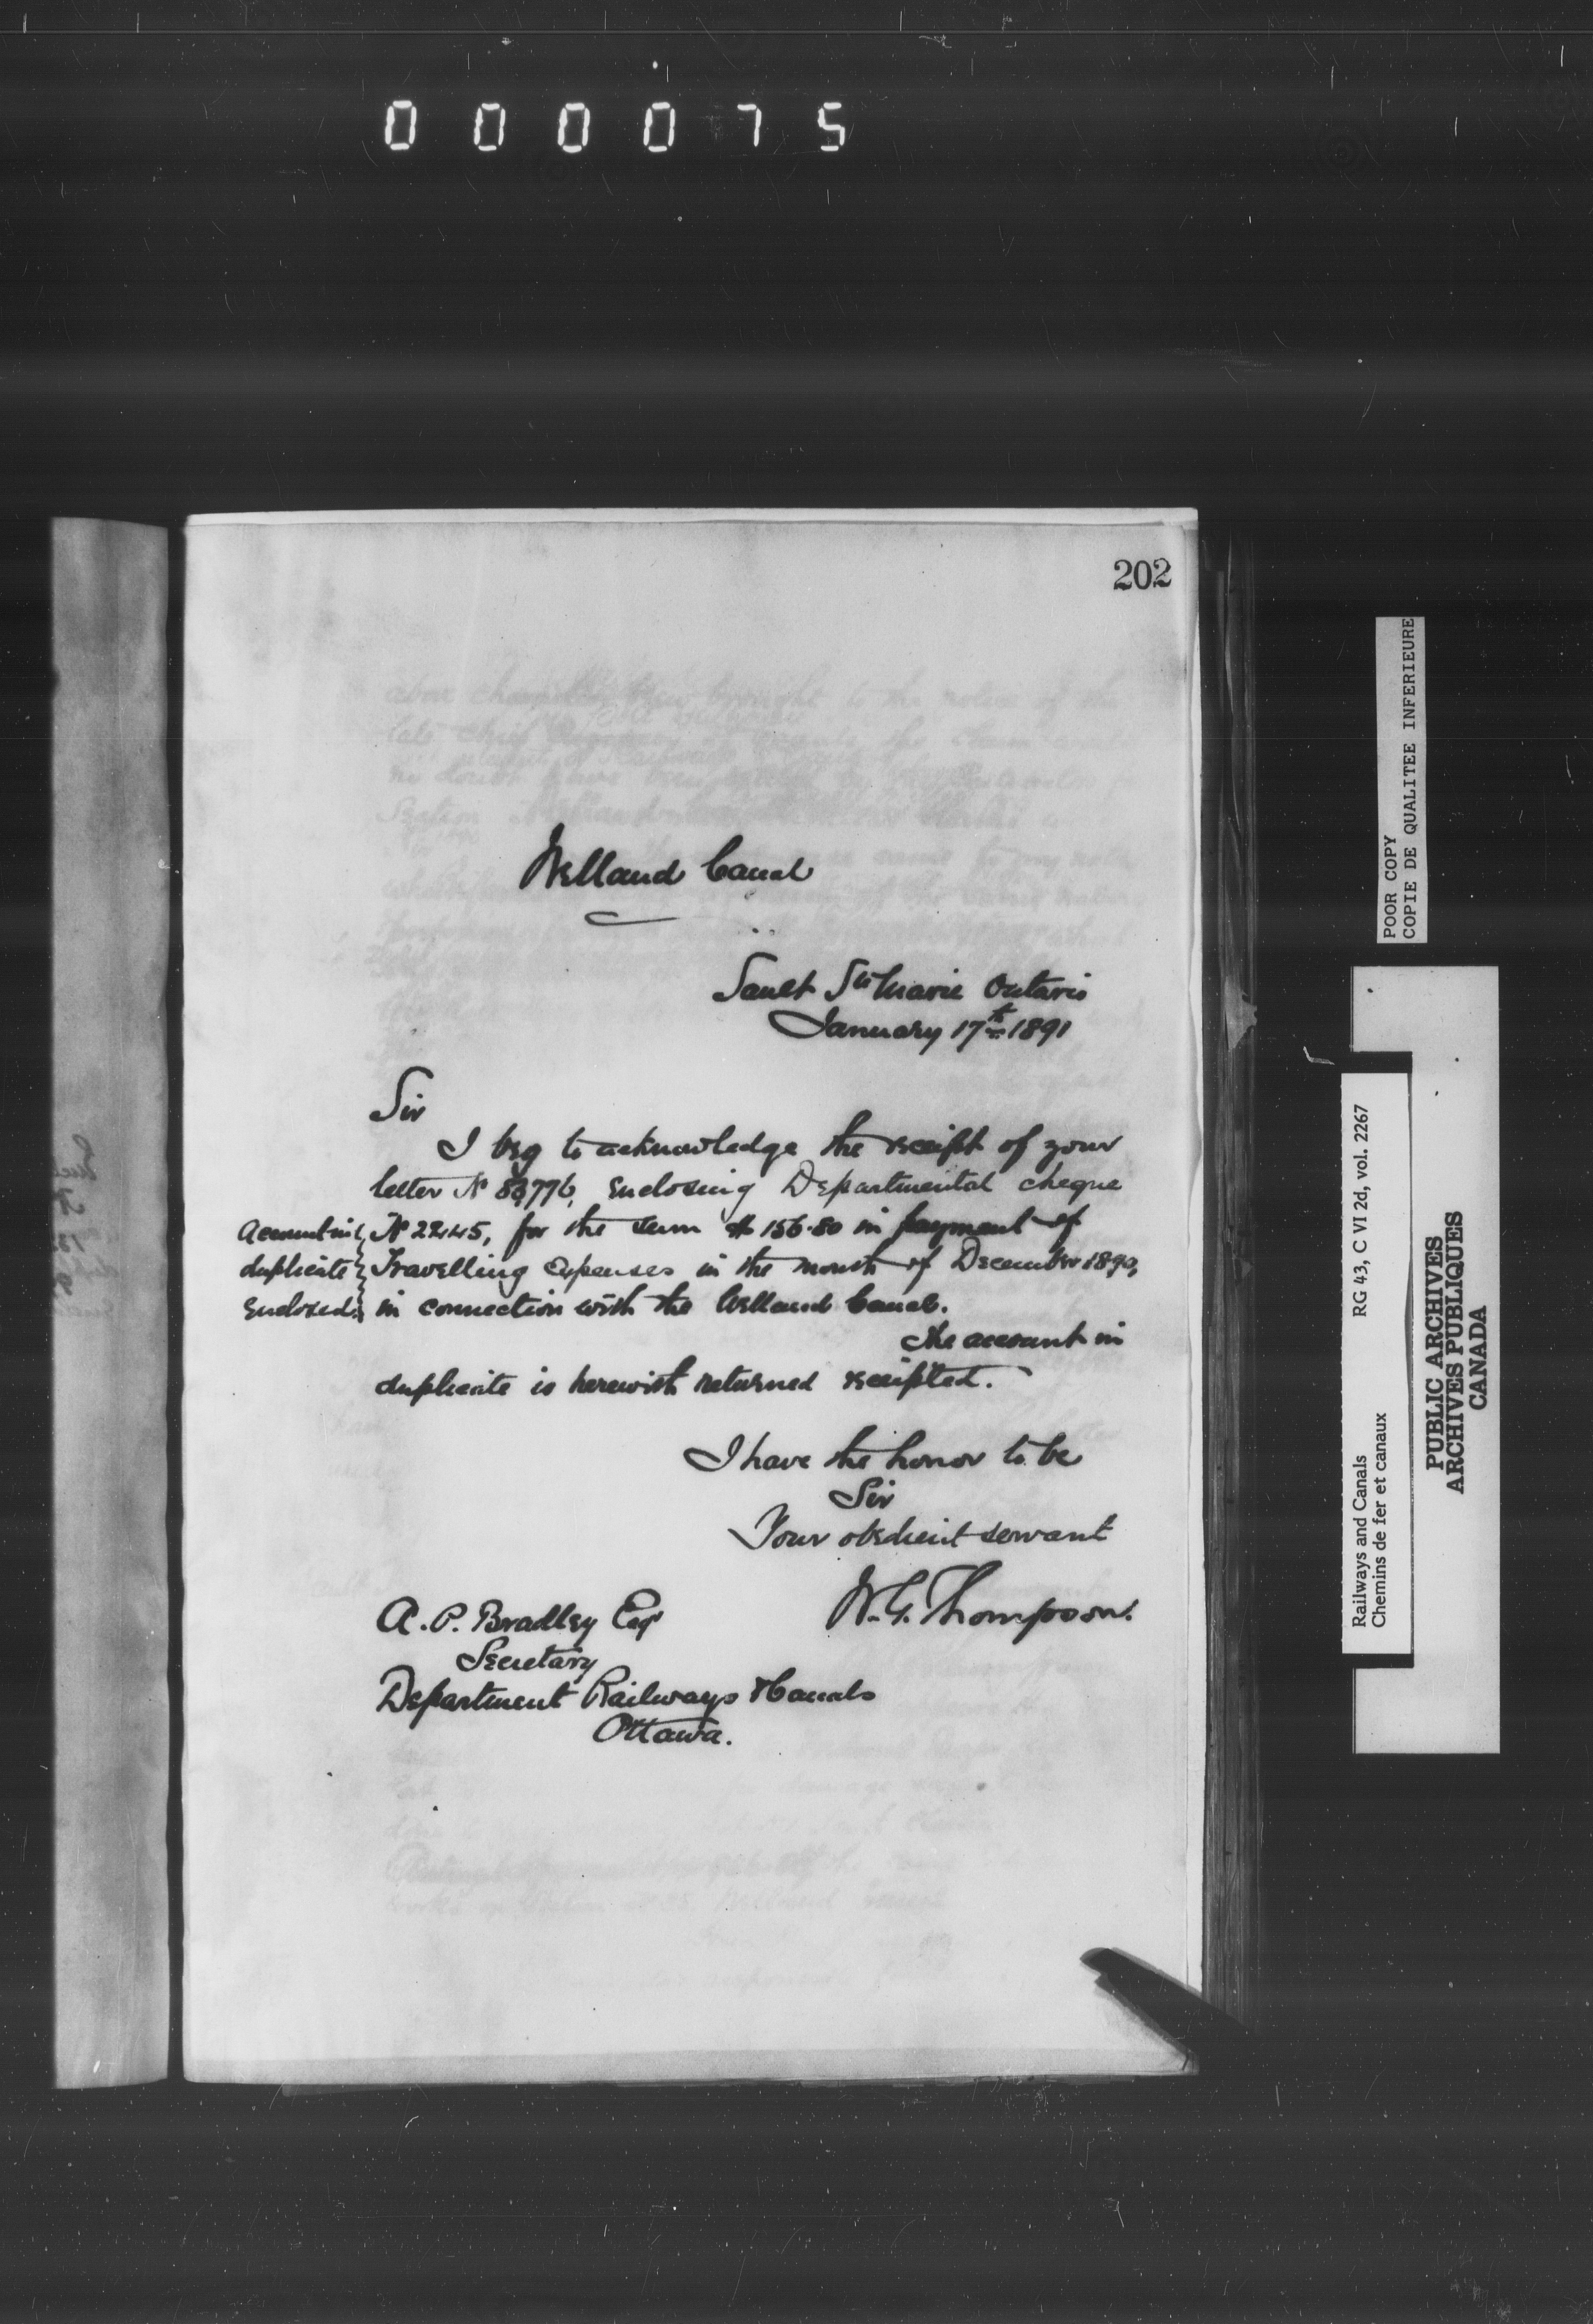 000075
202
Welland Canal
Sault Ste Marie Ontario
January 17th 1891
Sir
I beg to acknowledge the receipt of your
letter No enclosing Departmental cheque
No 2245, for the sum $156.80 in payment of
Travelling Expenses in the month of December 1890,
in connection with the Welland Canal.
Account in
duplicate
enclosed.
The account in
duplicate is herewith returned receipted.
I have the honor to be
Sir
Your obedient servant
W.G. Thompson.
A.P. Bradley Esqr
Secretary
Department Railways & Canals
Ottawa.
POOR COPY
COPIE DE QUALITEE INFERIEURE
Railways and Canals RG 43, C VI 2d, vol. 2267
Chemins de fer et canaux
PUBLIC ARCHIVES
ARCHIVES PUBLIQUES
CANADA